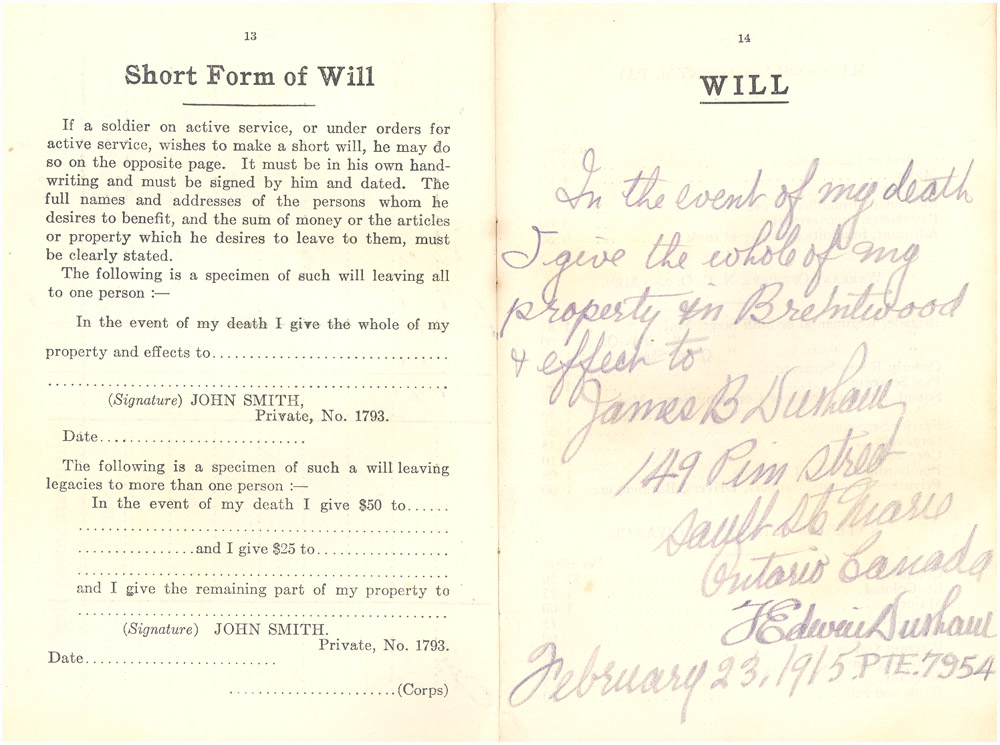 13
Short Form of Will
If a soldier on active service, or under orders for
active service, wishes to make a short will, he may do
so on the opposite page. It must be in his own hand-
writing and must be signed by him and dated. The
full names and addresses of the persons whom he
desires to benefit, and the sum of money or the articles
or property which he desires to leave to them, must
be clearly stated.
The following is a specimen of such will leaving all
to one person :—
In the event of my death I give the whole of my
property and effects to................................
.......................................................
(Signature) JOHN SMITH,
Private, No. 1793.
Date............................
The following is a specimen of such a will leaving
legacies to more than one person :—
In the event of my death I give $50 to......
.......................................................
................and I give $25 to..................
.......................................................
and I give the remaining part of my property to
.......................................................
(Signature) JOHN SMITH.
Private, No. 1793.
Date..........................
.......................(Corps)
14
WILL
In the event of my death
I give the whole of my
property in Brentwood
& effect to
James B Dunham
149 Pim Street
Sault Ste Marie
Ontario Canada
Edwin Dunham
February 23, 1915. PTE. 7954